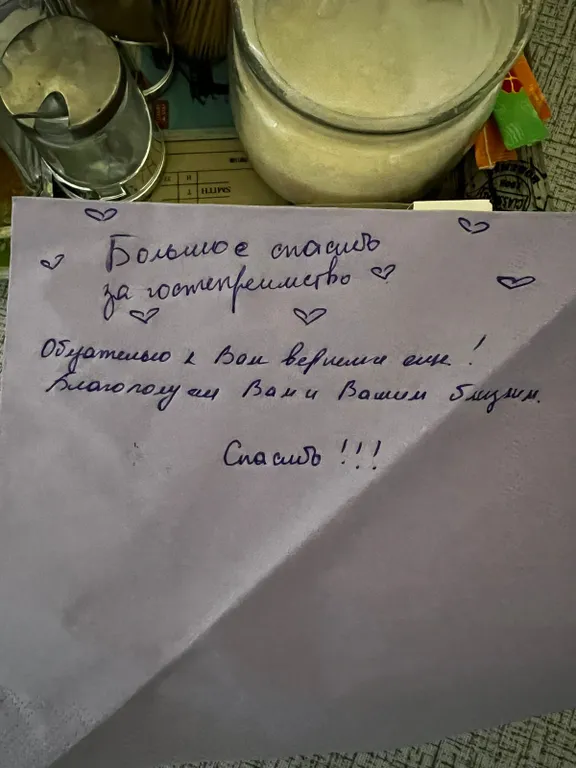 SMITH
Большое спасибо
за гостепреимство
Обязательно к Вам вернемся еще!
Благополучия Вам и Вашим близким.
Спасибо!!!